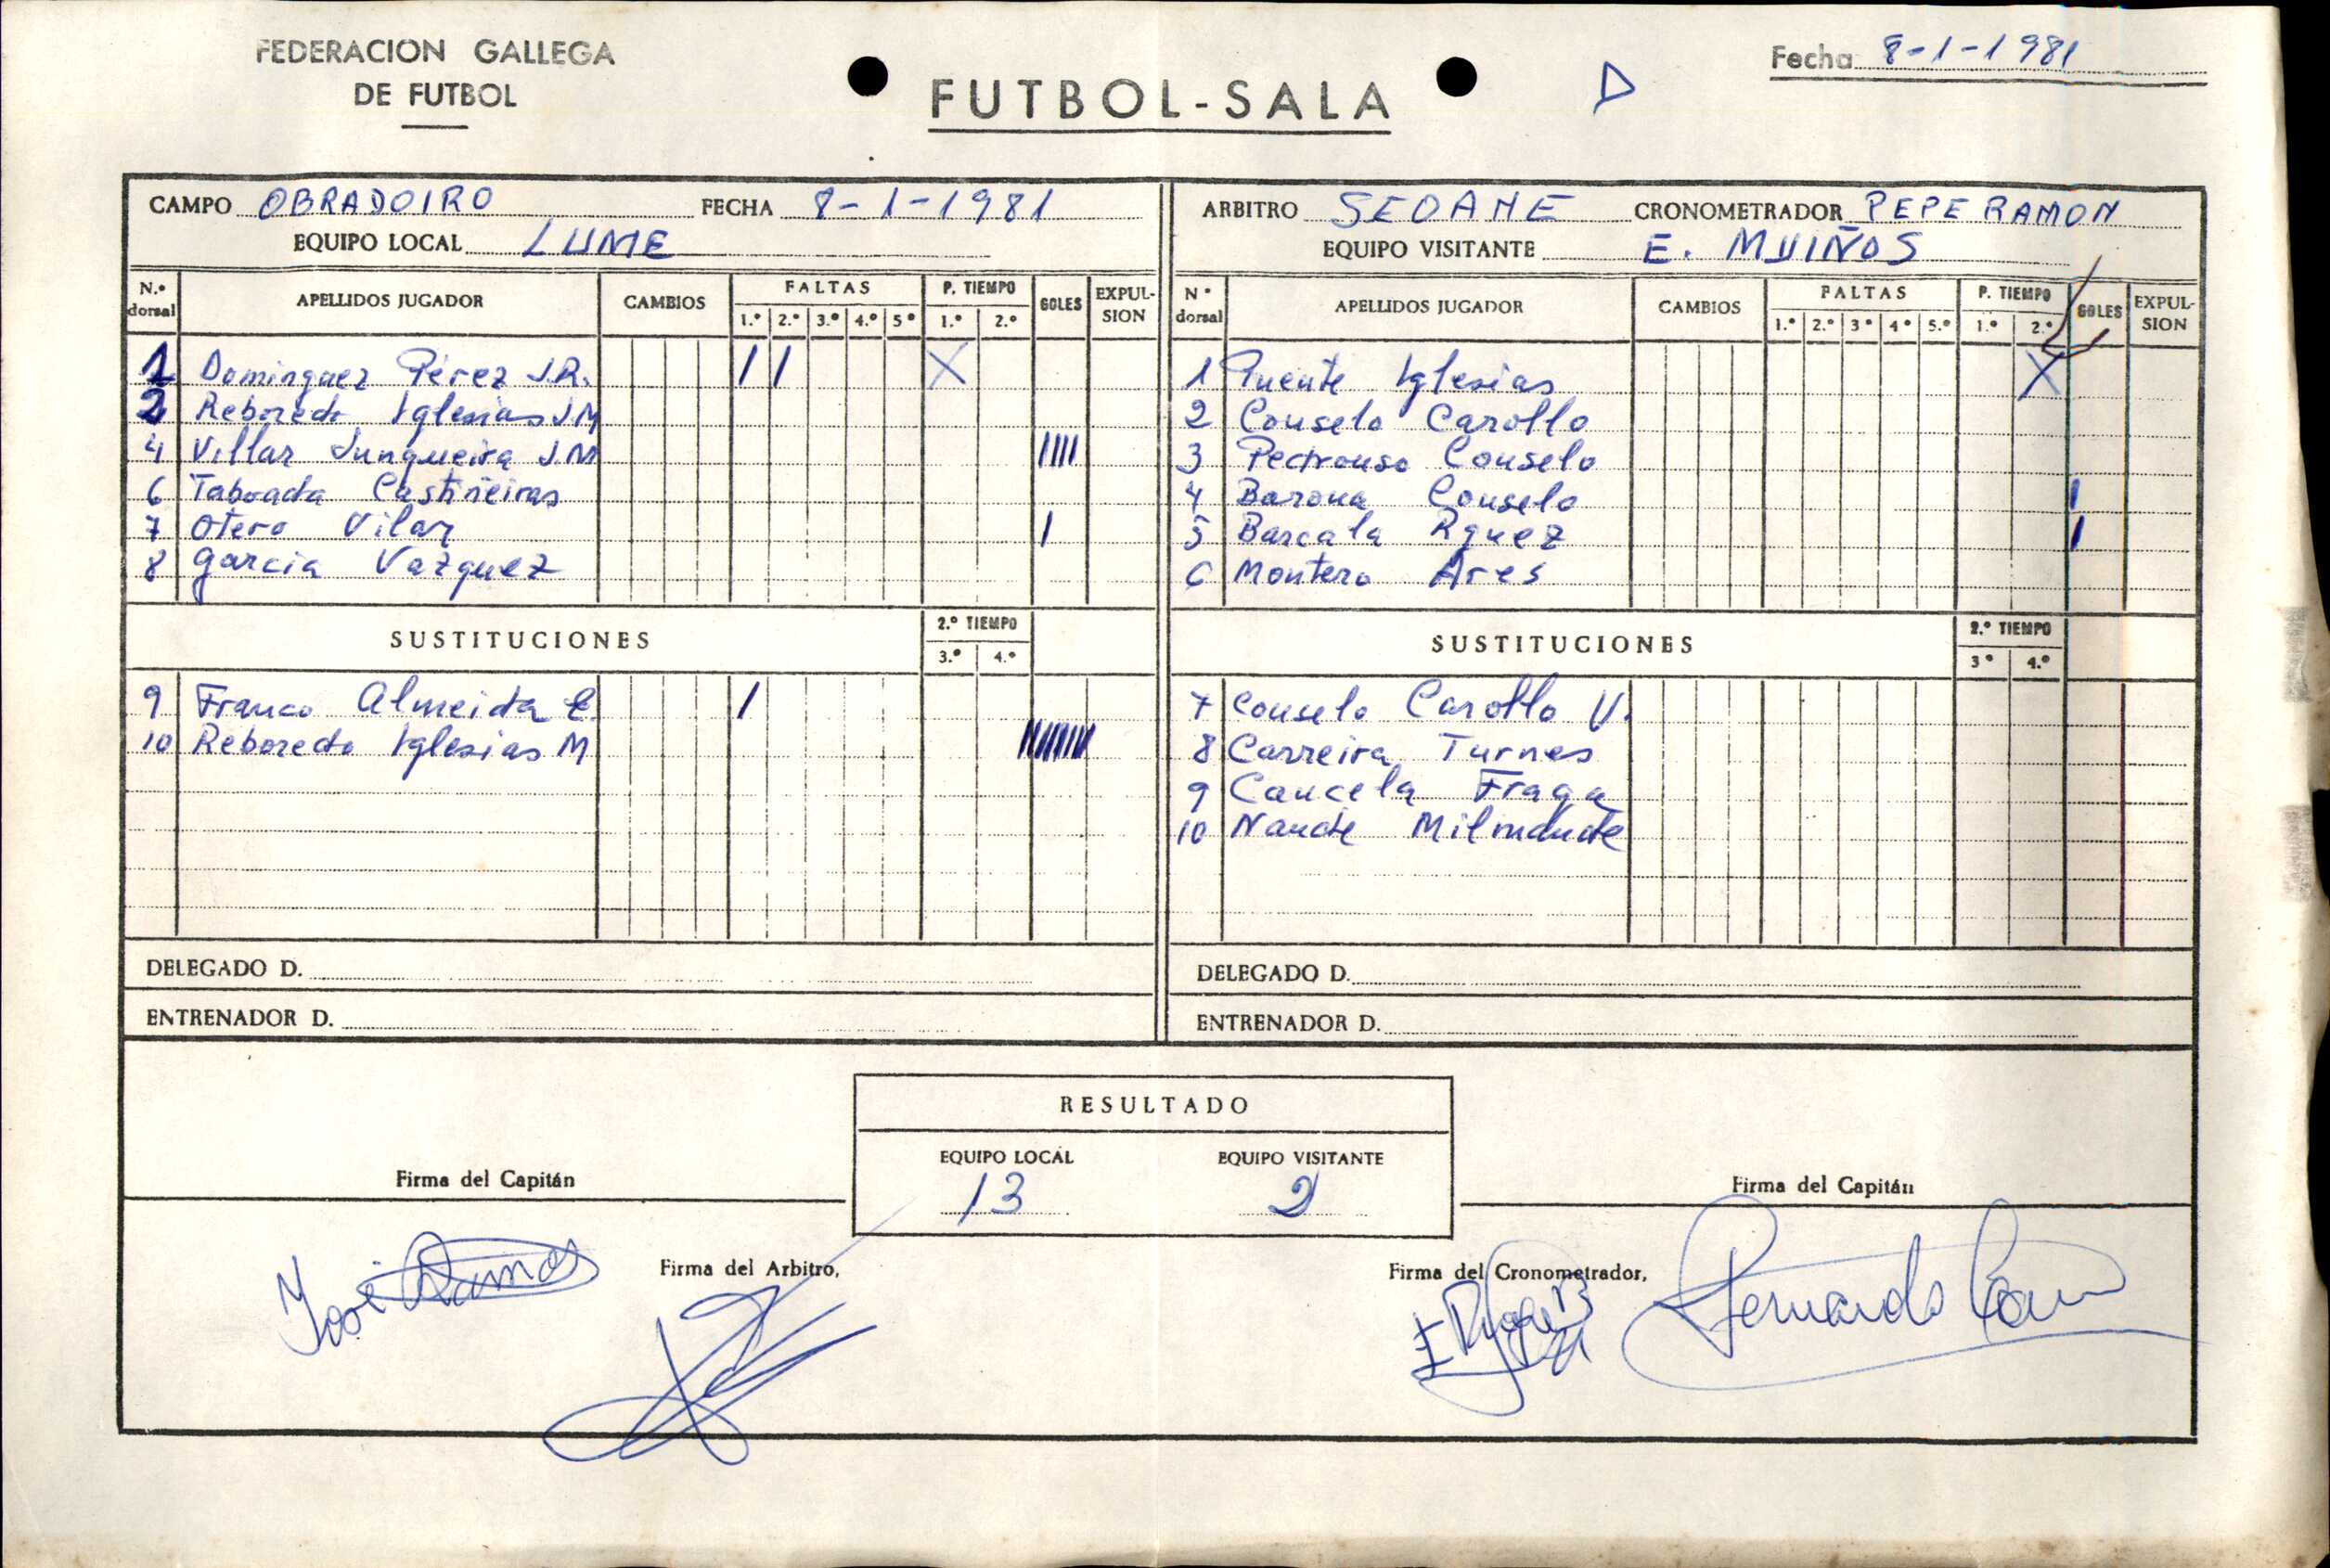 FEDERACION GALLEGA
DE FUTBOL
FUTBOL-SALA
D
Fecha 8-1-1981
CAMPO OBRADOIRO FECHA 8-1-1981
EQUIPO LOCAL LUME
N.º dorsal APELLIDOS JUGADOR CAMBIOS FALTAS 1.º 2.º 3.º 4.º 5º P. TIEMPO 1.º 2.º GOLES EXPULSION
1 Dominguez Pérez J.R. | | X
2 Reboredo Iglesias J.M
4 Villar Junqueira J M ||||
6 Taboada Castiñeiras
7 Otero Vilar |
8 Garcia Vazquez
SUSTITUCIONES 2.º TIEMPO 3.º 4.º
9 Franco Almeida E. |
10 Reboredo Iglesias M ||||||||
DELEGADO D.
ENTRENADOR D.
ARBITRO SEOANE CRONOMETRADOR PEPE RAMON
EQUIPO VISITANTE E. MUIÑOS
N.º dorsal APELLIDOS JUGADOR CAMBIOS FALTAS 1.º 2.º 3º 4º 5.º P. TIEMPO 1.º 2.º GOLES EXPULSION
1 Puente Iglesias X
2 Couselo Carollo
3 Pedrouso Couselo
4 Barona Couselo |
5 Barcala Rguez |
6 Montero Ares
SUSTITUCIONES 2.º TIEMPO 3º 4.º
7 Couselo Carollo V.
8 Carreira Turnes
9 Cancela Fraga
10 Nande
DELEGADO D.
ENTRENADOR D.
RESULTADO
EQUIPO LOCAL EQUIPO VISITANTE
13 2
Firma del Capitán
José Ramos
Firma del Arbitro,
Firma del Cronometrador,
Firma del Capitán
Fernando